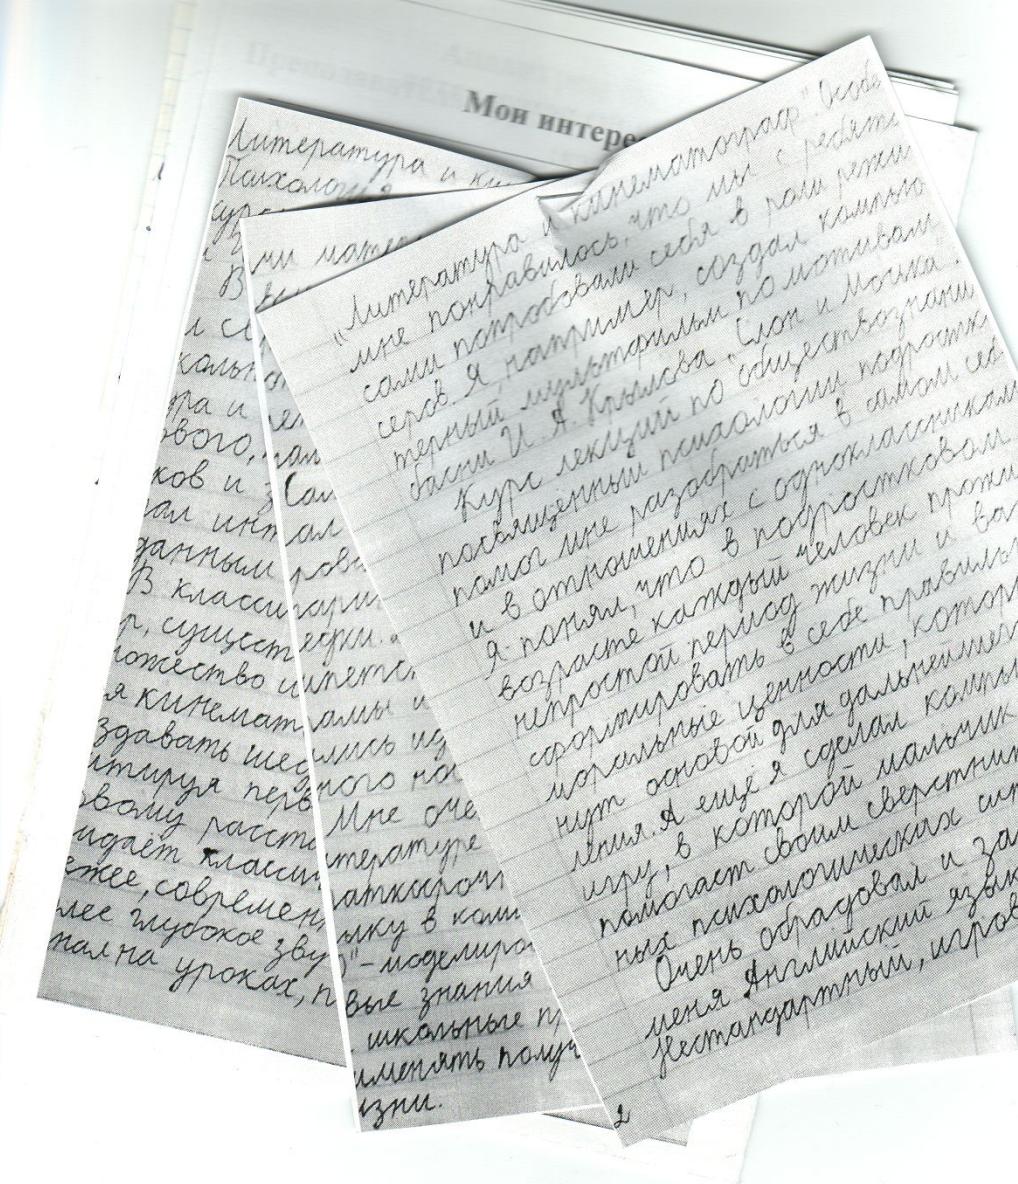 Мои интере
Литература и ки
Психология
В
л с
кально
ра и
ового,
ков и
ал инт
данным
В класси
р, сущест
ножество
я кинемат
здавать шед
итируя перв
овому расст
идаёт класси
ежее, современ
лее глубокое зву
нал на уроках, п
учи мате
В
Сам
ал
рови
арии
едки.
ипетск
амы и
ились из
ного на
Мне оче
итературе
аткосрочн
ыку в комп
"-моделиро
вые знания
школьные пр
именять получ
изни.
„Литература и кинематограф". Особе
мне понравилось, что мы с ребята
сами попробовали себя в роли режис
серов. Я, например, создал компью
терный мультфильм по мотивам
басни И. А. Крылова „Слон и Моська".
Курс лекций по обществознани
посвященный психологии подростк
помог мне разобраться в самом себ
и в отношениях с одноклассникам
Я понял, что в подростковом
возрасте каждый человек прожи
непростой период жизни и ва
сформировать в себе правильн
моральные ценности, котор
нут основой для дальнейшего
ления. А ещё я сделал компью
игру, в которой мальчик
помогает своим сверстник
ных психологических сит
Очень обрадовал и за
меня Английский язык
Нестандартный, игров
2